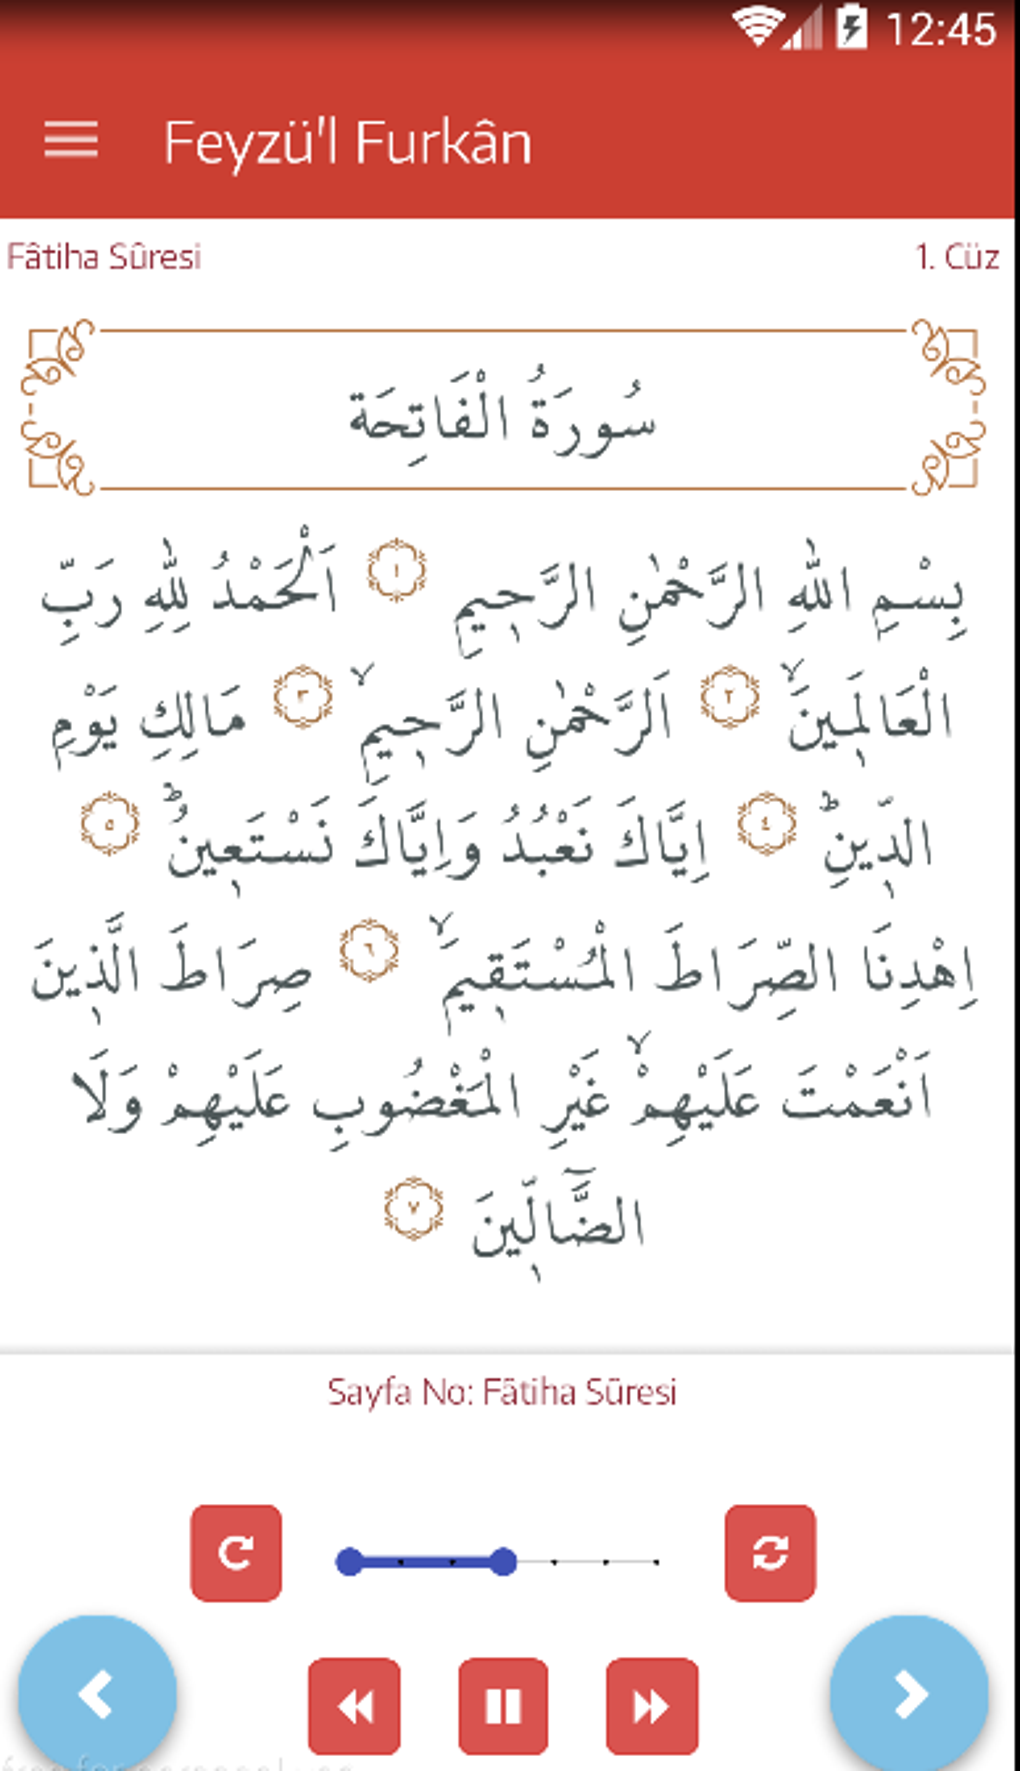 12:45
Feyzü'l Furkân
Fâtiha Sûresi
1. Cüz
سُورَةُ الْفَاتِحَة
بِسْمِ اللّٰهِ الرَّحْمٰنِ الرَّح۪يمِ ١ اَلْحَمْدُ لِلّٰهِ رَبِّ
الْعَالَم۪ينَۙ ٢ اَلرَّحْمٰنِ الرَّح۪يمِۙ ٣ مَالِكِ يَوْمِ
الدّ۪ينِۜ ٤ اِيَّاكَ نَعْبُدُ وَاِيَّاكَ نَسْتَع۪ينُۜ ٥
اِهْدِنَا الصِّرَاطَ الْمُسْتَق۪يمَۙ ٦ صِرَاطَ الَّذ۪ينَ
اَنْعَمْتَ عَلَيْهِمْۙ غَيْرِ الْمَغْضُوبِ عَلَيْهِمْ وَلَا
الضَّٓالّ۪ينَ ٧
Sayfa No: Fâtiha Sûresi